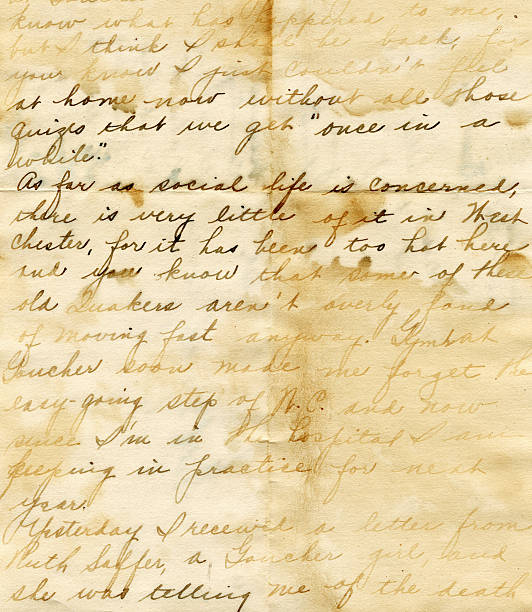 know what has happened to me,
but I think I shall be back, for
you know I just couldn't feel
at home now without all those
quizes that we get "once in a
while".
As far as social life is concerned,
there is very little of it in West
Chester, for it has been too hot here
and you know that some of these
old Quakers aren't overly fond
of moving fast anyway.
Goucher soon made me forget the
easy-going step of N.C. and now
since I'm in the hospital I am
keeping in practice for next
year.
Yesterday I received a letter from
Ruth a Goucher girl, and
she was telling me of the death